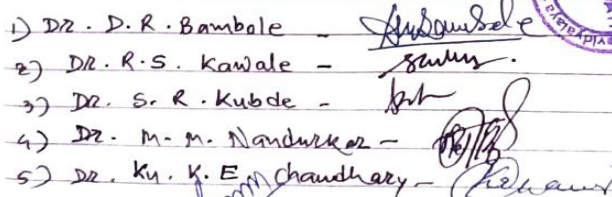 1) DR. D. R. Bambole -
2) DR. R. S. Kawale -
3) DR. S. R. Kubde -
4) DR. M. M. Nandurkar -
5) DR. Ku. K. E. Chaudhary -